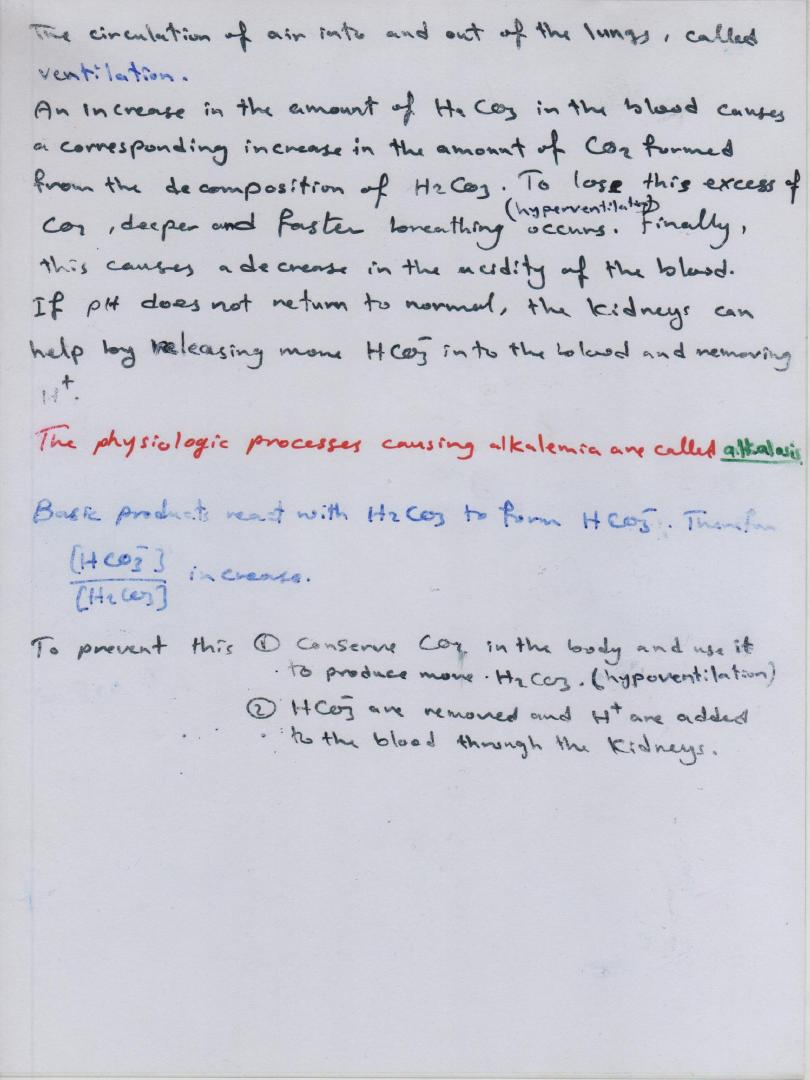 The circulation of air into and out of the lungs, called
ventilation.
An increase in the amount of H2CO3 in the blood causes
a corresponding increase in the amount of CO2 formed
from the decomposition of H2CO3. To lose this excess of
CO2, deeper and faster breathing (hyperventilation) occurs. Finally,
this causes a decrease in the acidity of the blood.
If pH does not return to normal, the kidneys can
help by releasing more HCO3⁻ into the blood and removing
H⁺.
The physiologic processes causing alkalemia are called alkalosis
Basic products react with H2CO3 to form HCO3⁻. Therefore
[HCO3⁻]
[H2CO3] increase.
To prevent this ① Conserve CO2 in the body and use it
to produce more H2CO3. (hypoventilation)
② HCO3⁻ are removed and H⁺ are added
to the blood through the kidneys.